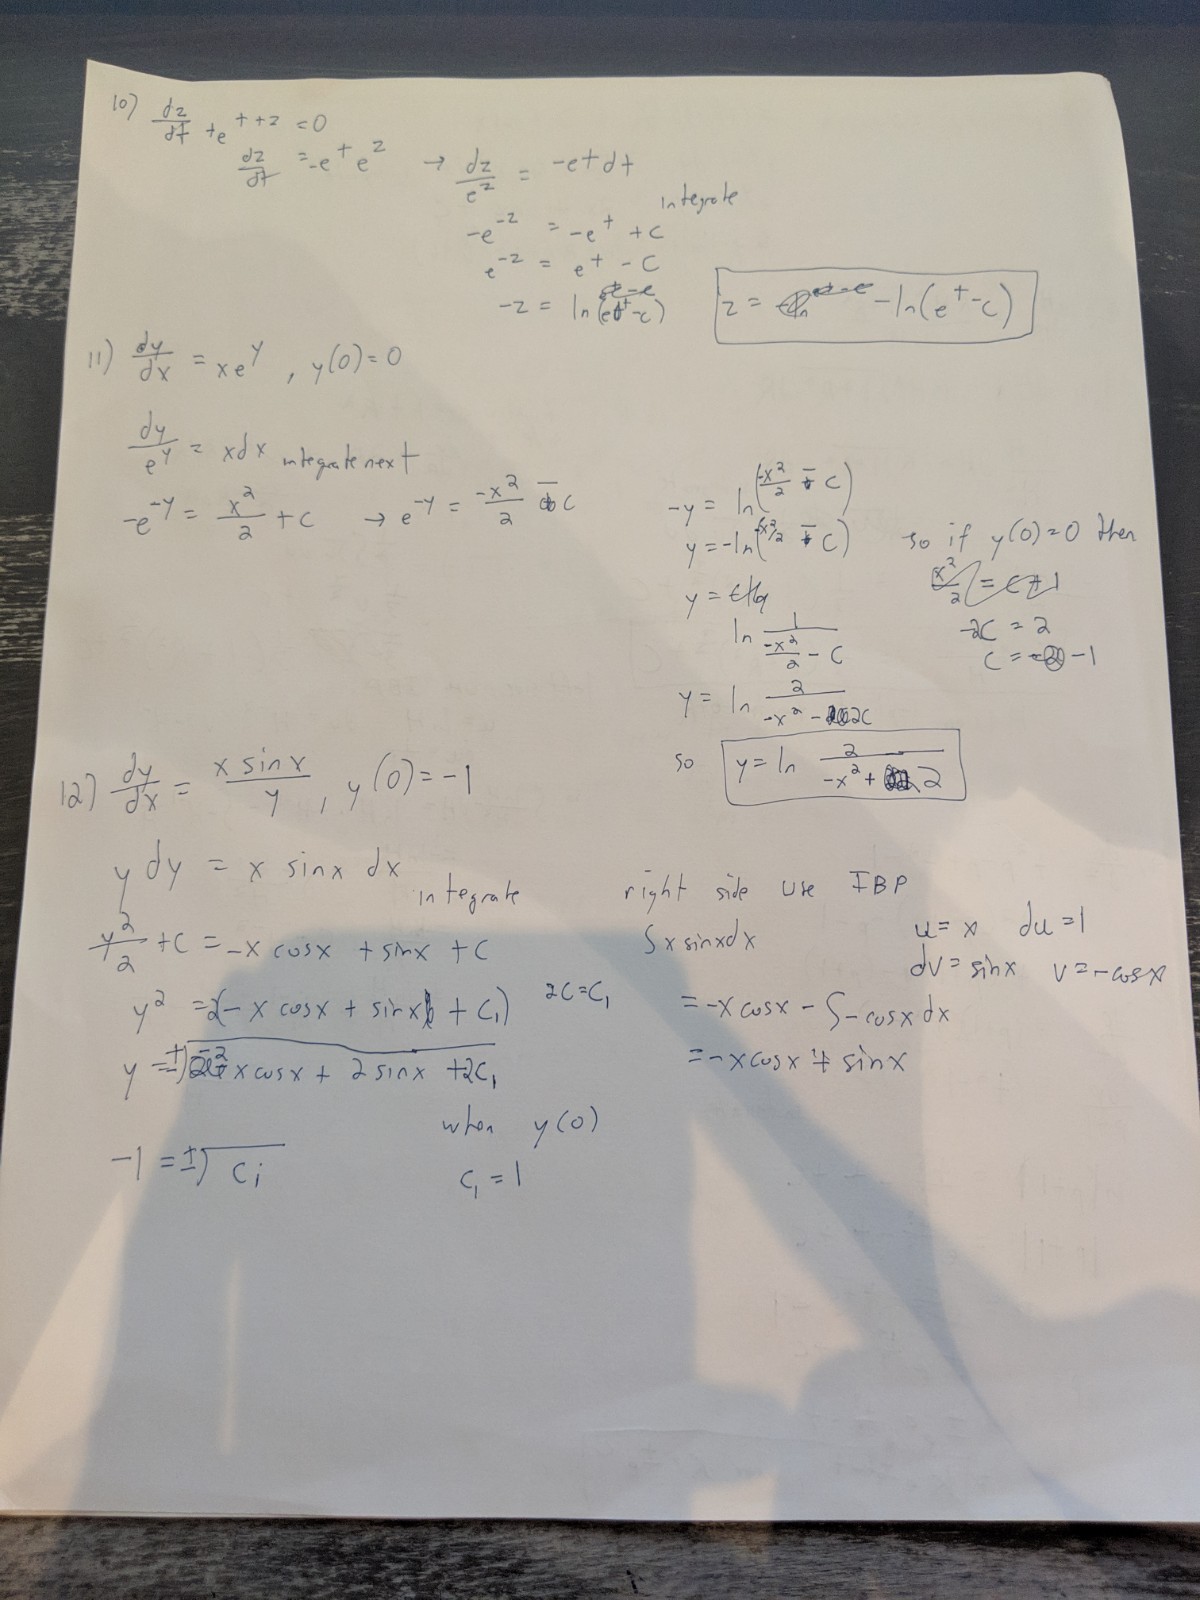 10) dz/dt + e^(t+z) = 0
dz/dt = -e^t e^z → dz/e^z = -e^t dt
integrate
-e^-z = -e^t + C
e^-z = e^t - C
-z = ln(e^t - c)
z = -ln(e^t - c)
11) dy/dx = xe^y , y(0) = 0
dy/e^y = xdx integrate next
-e^-y = x^2/2 + C → e^-y = -x^2/2 - C
-y = ln(-x^2/2 - C)
y = -ln(-x^2/2 - C)
y =
ln 1/(-x^2/2 - C)
y = ln 2/(-x^2 - 2C)
so if y(0) = 0 then
-2C = 2
C = -1
so y = ln 2/(-x^2 + 2)
12) dy/dx = x sinx/y , y(0) = -1
y dy = x sinx dx
integrate
y^2/2 + C = -x cosx + sinx + C
y^2 = 2(-x cosx + sinx + C₁) 2C = C₁
y = ±√(-2x cosx + 2 sinx + 2C₁)
when y(0)
-1 = ±√C₁
C₁ = 1
right side use IBP
∫x sinxdx
u = x du = 1
dv = sinx v = -cosx
= -x cosx - ∫-cosx dx
= -xcosx + sinx